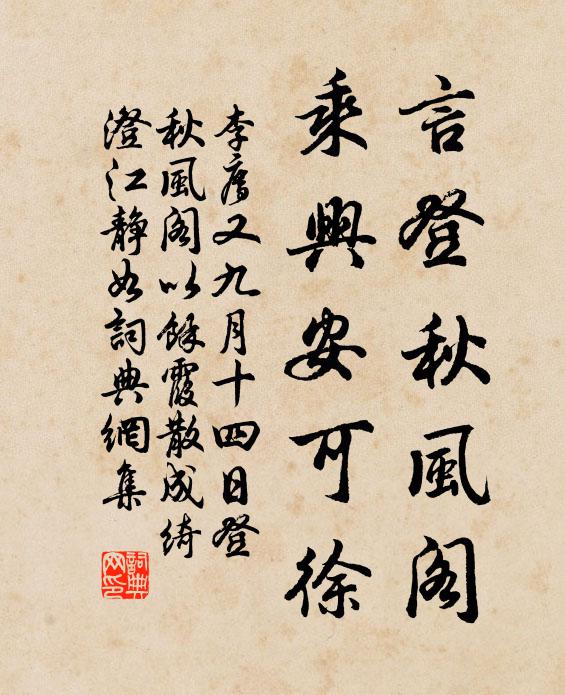 言登秋風閣
乘興安可徐
李廌又九月十四日登
秋風閣以餘霞散成綺
澄江靜如詞典網集
詞典網印